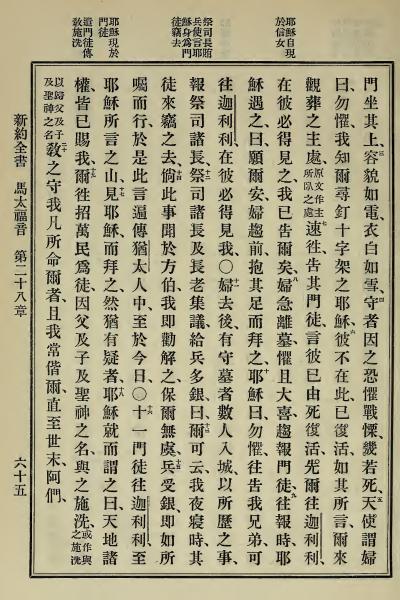 耶穌自現
於信女
祭司長賄
兵使言耶
穌身爲門
徒竊去
耶穌現於
門徒
遣門徒傳
敎施洗
門坐其上、容貌如電、衣白如雪、守者因之恐懼戰慄、幾若死、五天使謂婦
曰、勿懼、我知爾尋釘十字架之耶穌、六彼不在此、已復活、如其所言、爾來
觀葬之主處、原文作主所臥之處七速往告其門徒、言彼已由死復活、先爾往迦利利、
在彼必得見之、我已告爾矣、八婦急離墓、懼且大喜、趨報門徒、九往報時、耶
穌遇之曰、願爾安、婦趨前抱其足而拜之、十耶穌曰、勿懼、往告我兄弟、可
往迦利利、在彼必得見我、○十一婦去後、有守墓者數人入城、以所歷之事、
報祭司諸長、十二祭司諸長及長老集議、給兵多銀、十三曰、爾可云、我夜寢時、其
徒來竊之去、十四倘此事聞於方伯、我卽勸解之、保爾無虞、十五兵受銀、卽如所
囑而行、於是此言遍傳猶太人中、至於今日、○十六十一門徒往迦利利、至
耶穌所言之山、十七見耶穌而拜之、然猶有疑者、十八耶穌就而謂之曰、天地諸
權、皆已賜我、十九爾往招萬民爲徒、因父及子及聖神之名、與之施洗、或作與之施洗
以歸父及子及聖神之名二十敎之守我凡所命爾者、且我常偕爾、直至世末、阿們、
新約全書 馬太福音 第二十八章 六十五